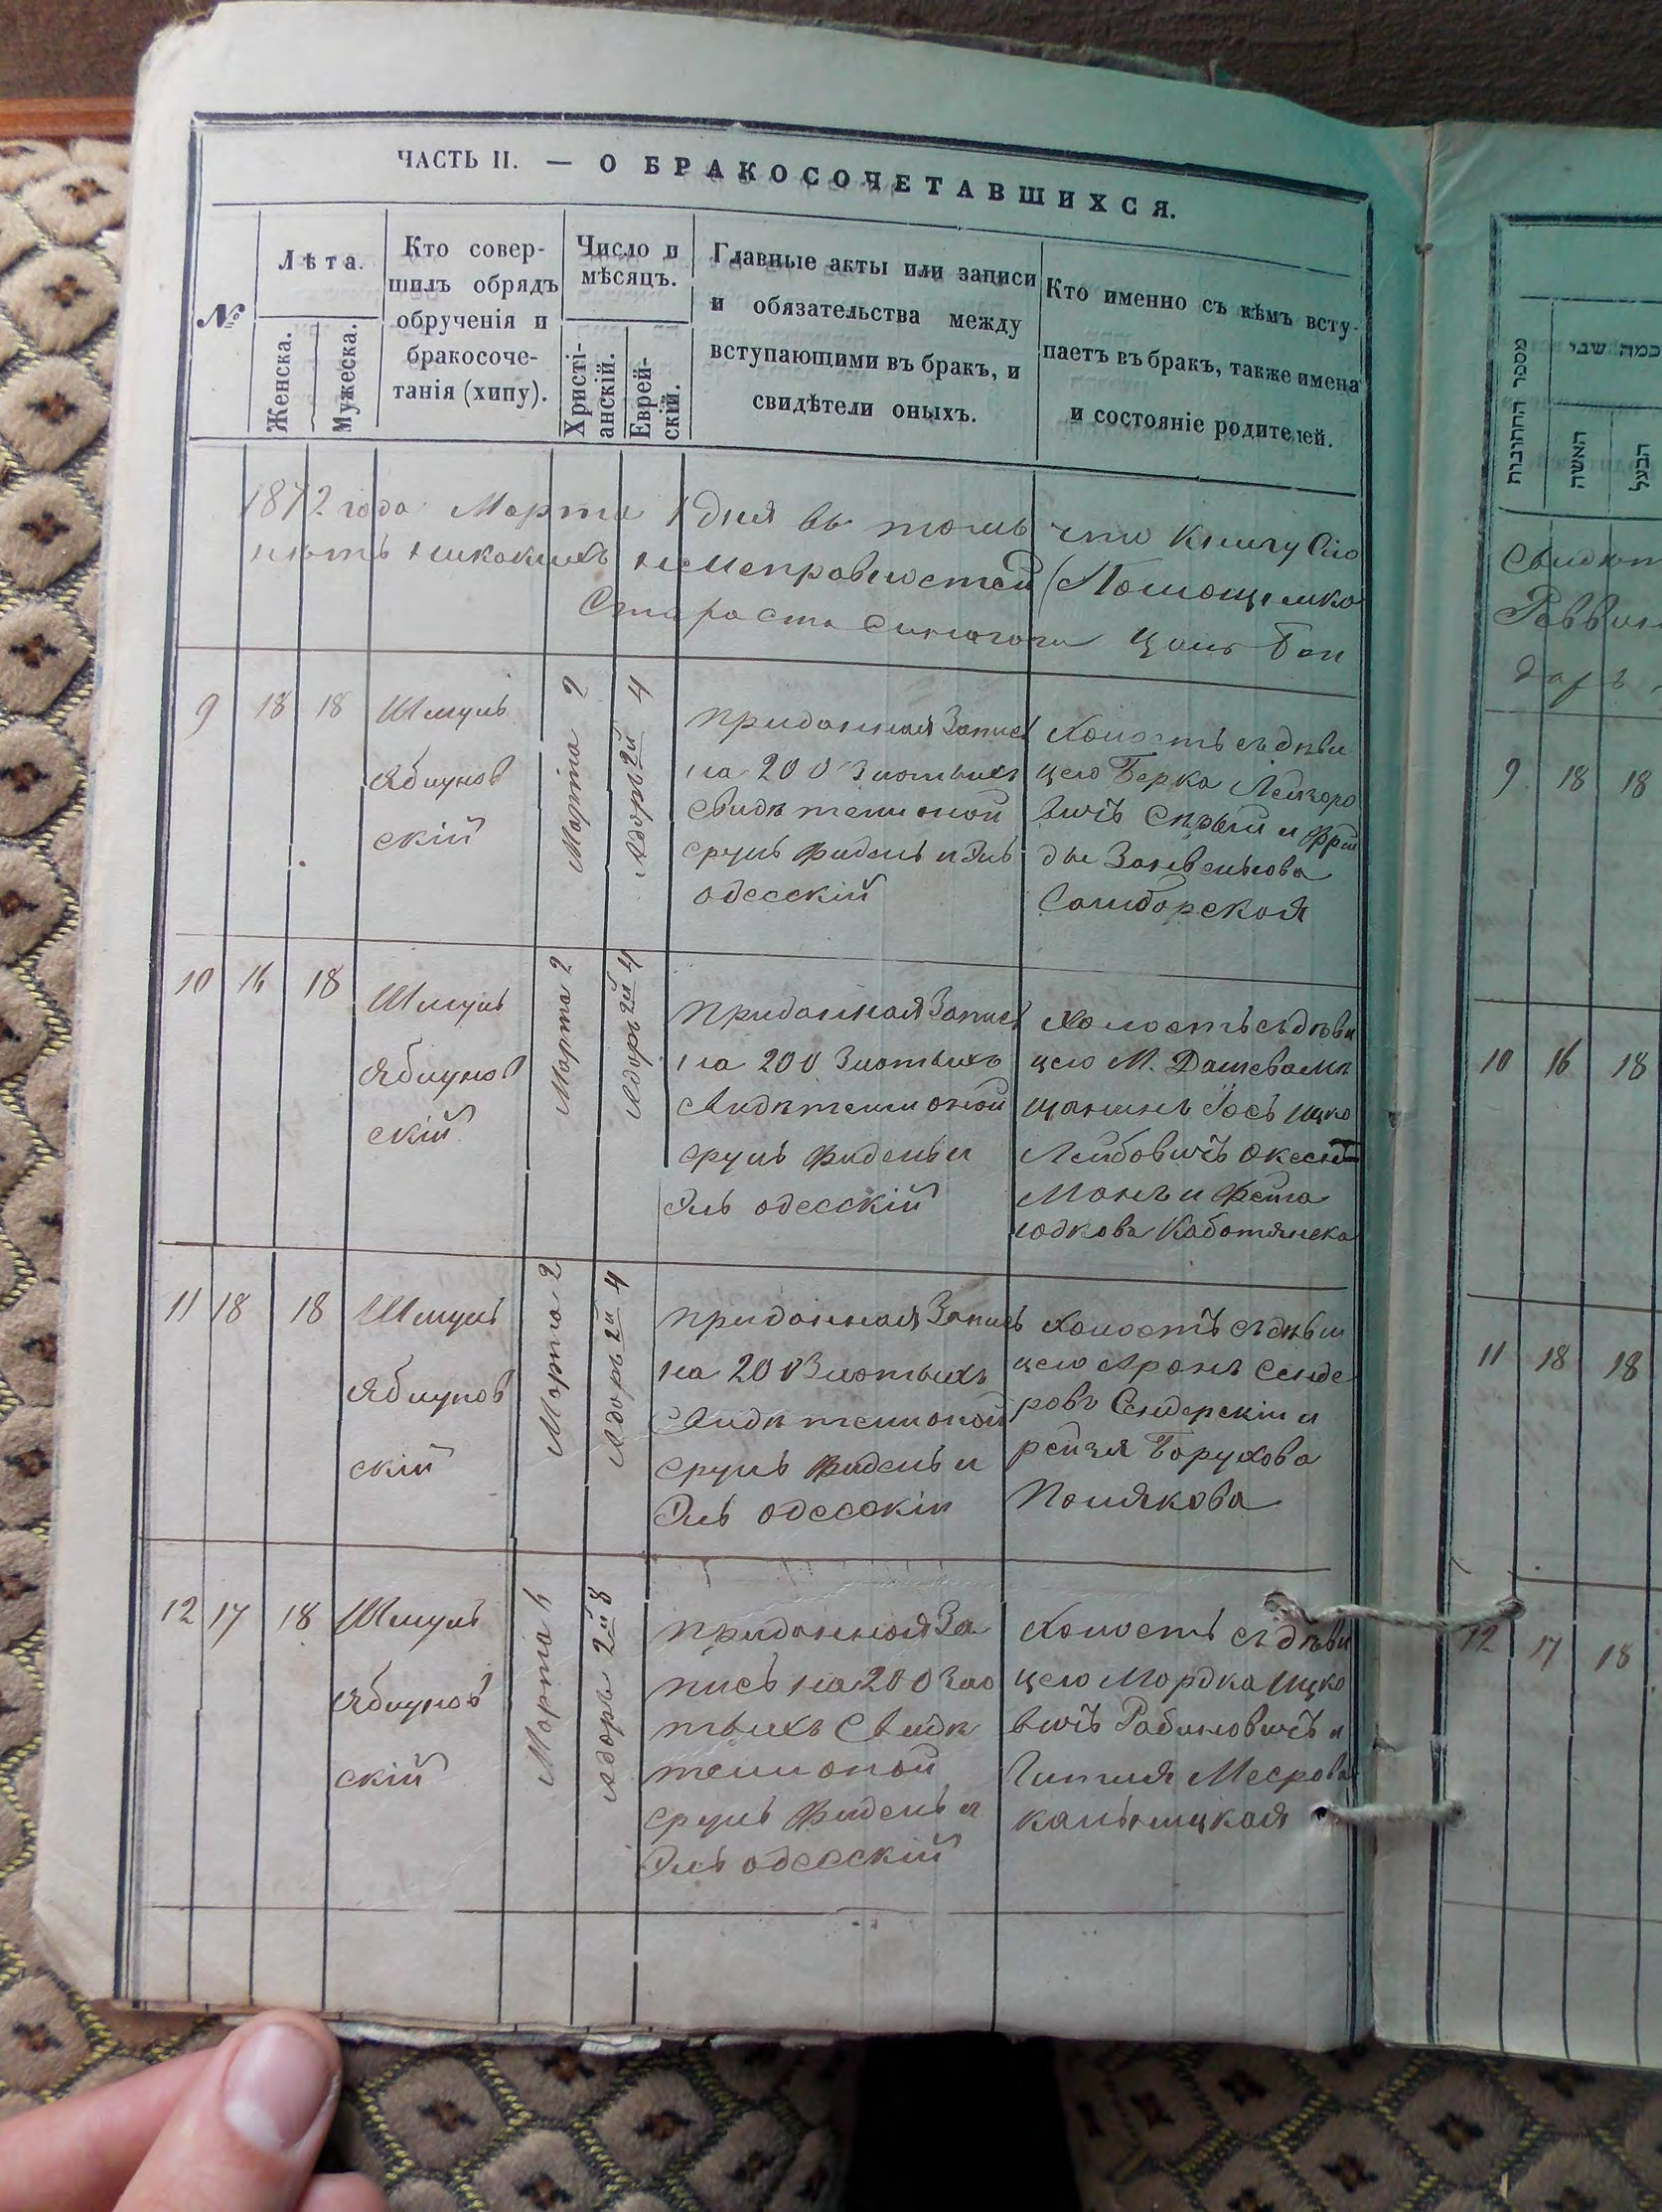 ЧАСТЬ II. — О БРАКОСОЧЕТАВШИХСЯ.
№
Лѣта.
Женска.
Мужеска.
Кто совер-
шилъ обрядъ
обрученія и
бракосоче-
танія (хипу).
Число и
мѣсяцъ.
Христі-
анскій.
Еврей-
скій.
Главные акты или записи
и обязательства между
вступающими въ бракъ, и
свидѣтели оныхъ.
Кто именно съ кѣмъ всту-
паетъ въ бракъ, также имена
и состояніе родителей.
1872 года Марта 1 дня въ томъ что Книгу Сію
нѣтъ никакихъ неисправностей Помощнико
Староста Синагоги
9 18 18
Шмуль
Яблунов
скій
Марта 2
Адоръ 2й 4
Приданная Запись
на 200 Злотыхъ
Свидѣтели оной
Сруль Фидель и Эль
одесскій
Холостъ съ дѣви
цею Берка Лейзоро
вичъ Сѣрый и Фрей
ды Занвелькова
Самборская
10 16 18
Шмуль
Яблунов
скій
Марта 2
Адоръ 2й 4
Приданная Запись
на 200 Злотыхъ
Свидѣтели оной
Сруль Фидель и
Эль одесскій
Холостъ съ дѣви
цею М. Дашева мѣ
щанинъ Іосъ Ицко
Лейбовичъ
Манъ и Фейга
юдкова
11 18 18
Шмуль
Яблунов
скій
Марта 2
Адоръ 2й 4
Приданная Запись
на 200 Злотыхъ
Свидѣтели оной
Сруль Фидель и
Эль одесскій
Холостъ съ дѣви
цею Аронъ Сенде
ровъ Сендерскій и
рейзя Борухова
Полякова
12 17 18
Шмуль
Яблунов
скій
Марта 6
Адоръ 2й 8
Приданная За
пись на 200 Зло
тыхъ Свидѣ
тели оной
Сруль Фидель и
Эль одесскій
Холостъ съ дѣви
цею Мордка Ицко
вичъ Рабиновичъ и
Гитля Меерова
Кальницкая
מספר החתונות
כמה שני
האשה
הבעל
9 18 18
10 16 18
11 18 18
12 17 18